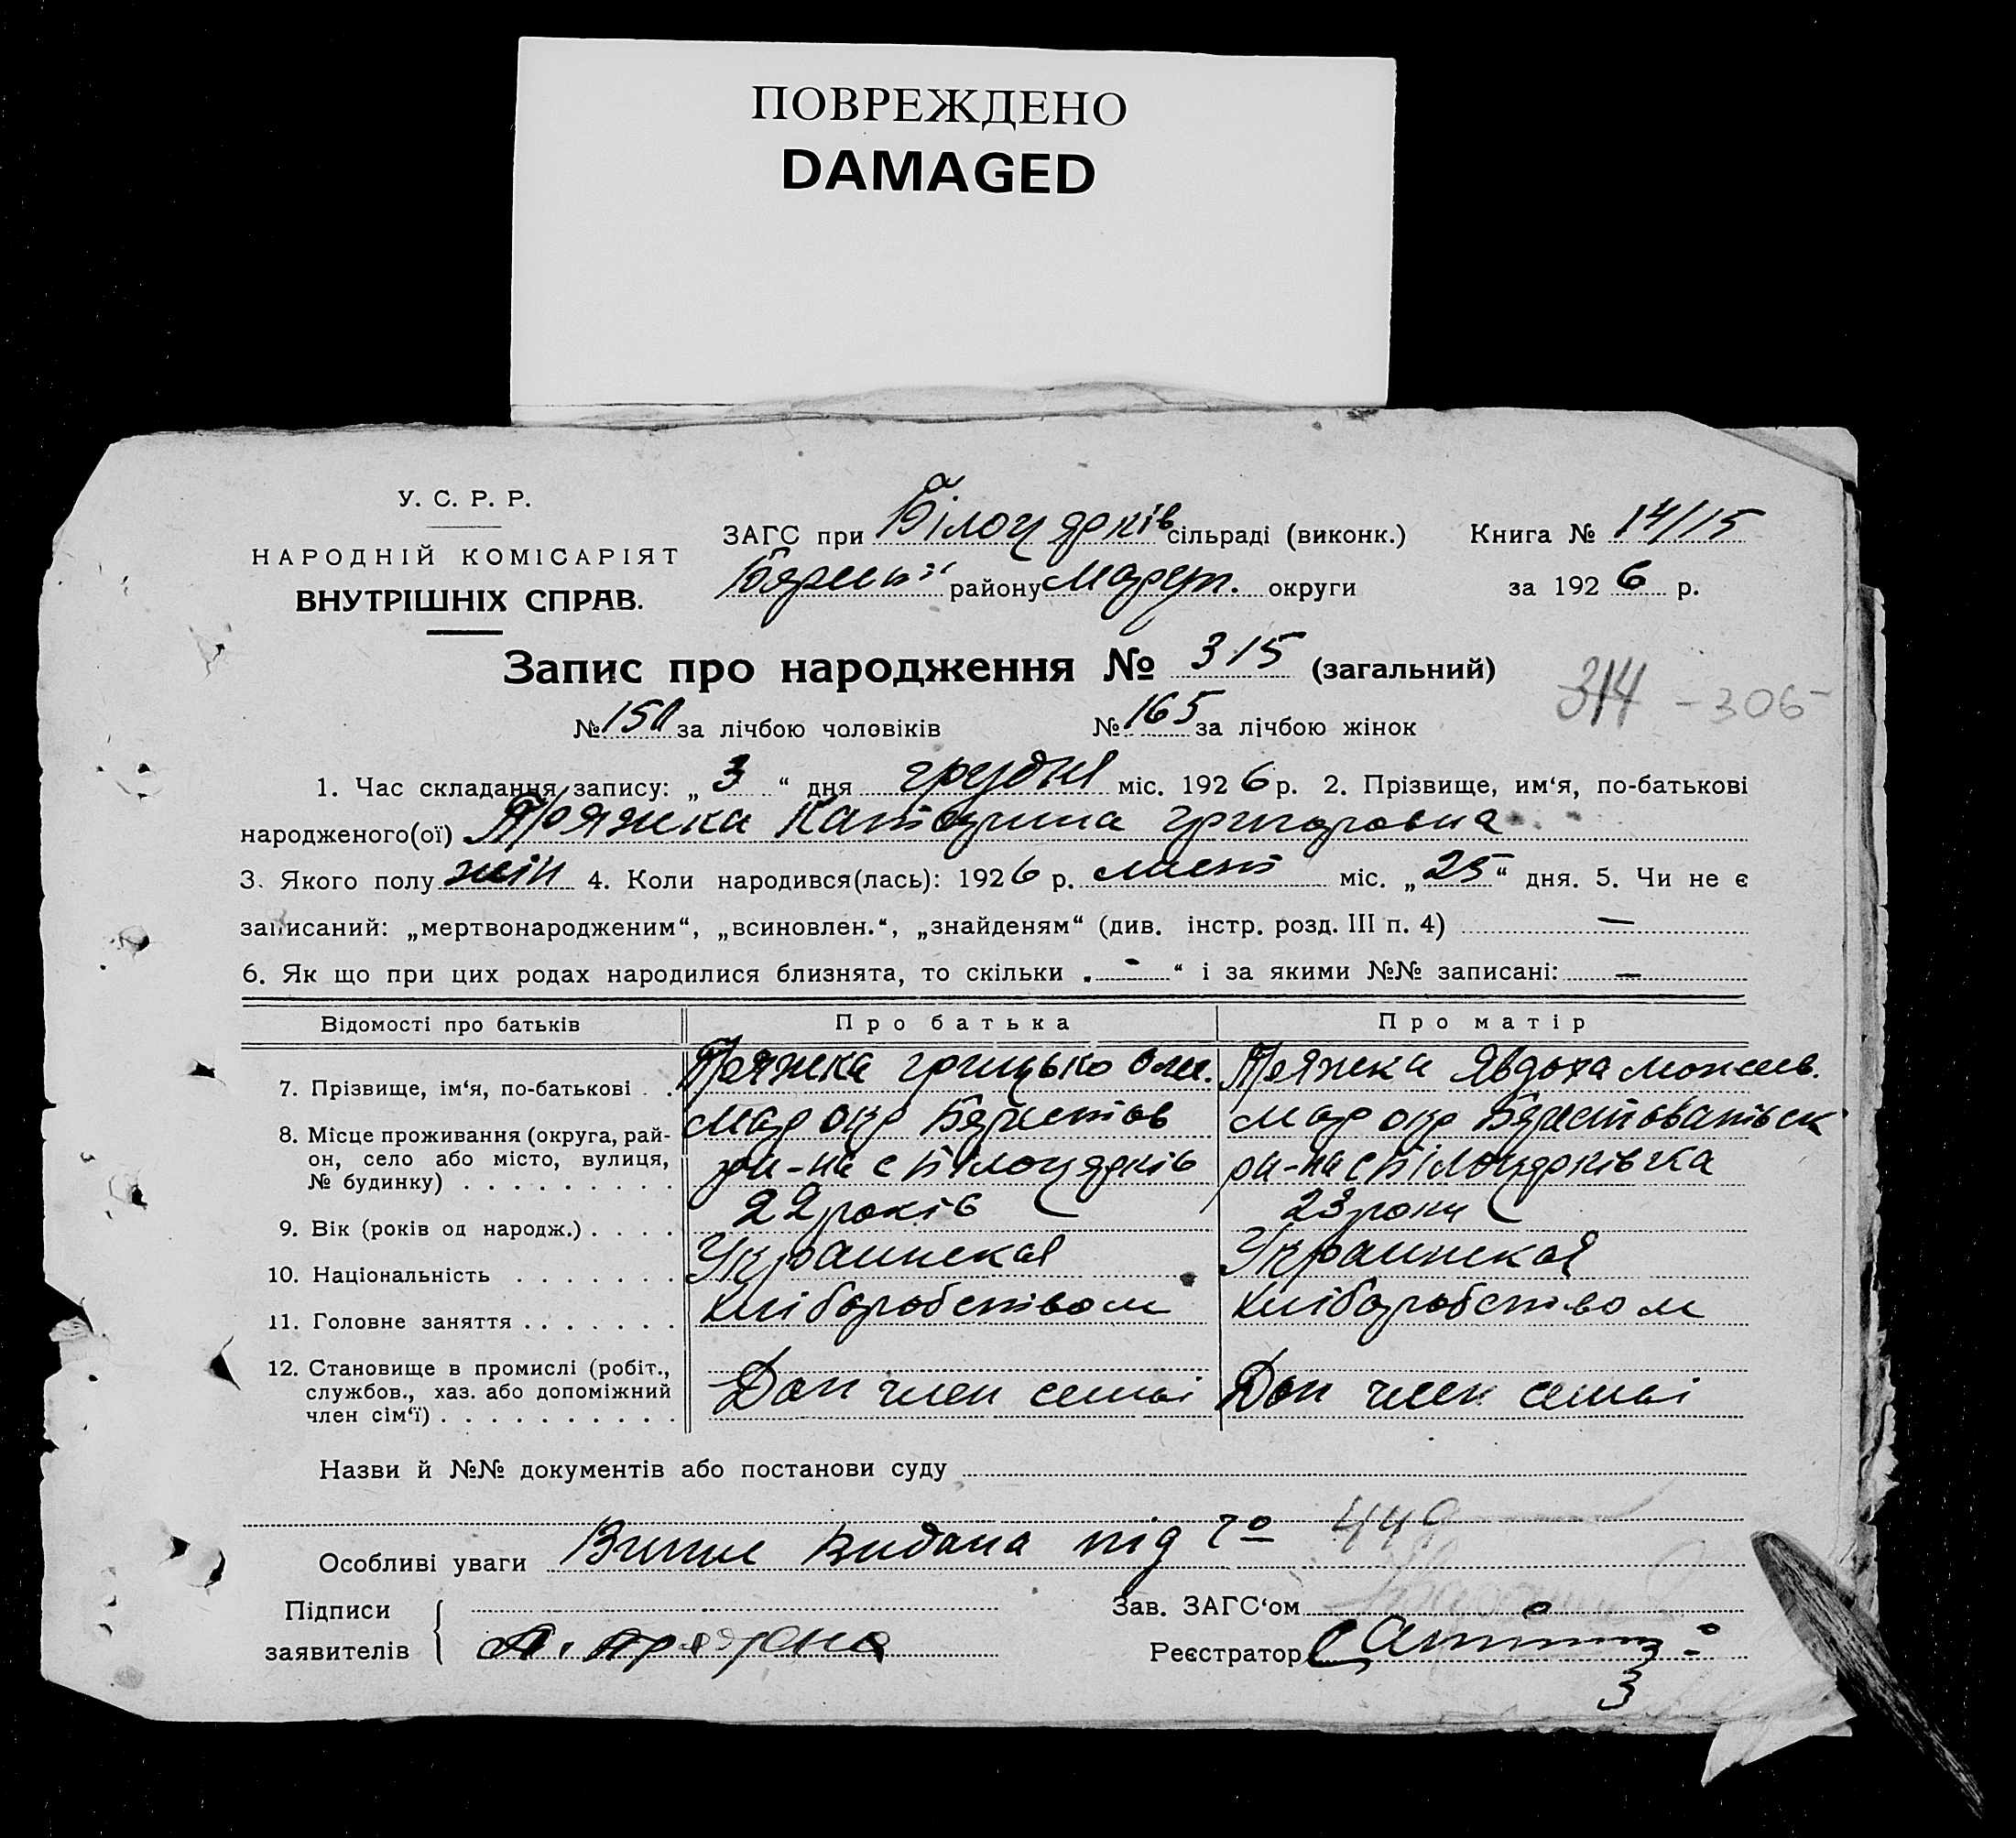 ПОВРЕЖДЕНО
DAMAGED
У. С. Р. Р.
НАРОДНІЙ КОМІСАРІЯТ
ВНУТРІШНІХ СПРАВ.
ЗАГС при Білоцерків сільраді (виконк.)
району Маруп. округи
Книга № 14/15
за 1926 р.
Запис про народження № 315 (загальний)
314 - 305
№ 150 за лічбою чоловіків № 165 за лічбою жінок
1. Час складання запису: „ 3 “ дня грудня міс. 1926 р. 2. Прізвище, им‘я, по-батькові
народженого(ої) Пряжка Катерина Григоровна
3. Якого полу жін 4. Коли народився(лась): 1926 р. лист міс. „ 25 “ дня. 5. Чи не є
записаний: „мертвонародженим“, „всиновлен.“, „знайденям“ (див. інстр. розд. III п. 4) —
6. Як що при цих родах народилися близнята, то скільки „ - “ і за якими №№ записані: —
Відомості про батьків Про батька Про матір
7. Прізвище, ім‘я, по-батькові . . Пряжка Грицько Ом. Пряжка Явдоха
8. Місце проживання (округа, рай-
он, село або місто, вулиця,
№ будинку) . . . . . . . . .
Мар окр Берестов
ра-на с Білоцерків
Мар окр Берестоватівск
ра-на с Білоцерківка
9. Вік (років од народж.) . . . . 22 років 23 роки
10. Національність . . . . . . . Украинская Украинская
11. Головне заняття . . . . . . . хліборобством хліборобством
12. Становище в промислі (робіт.,
службов., хаз. або допоміжний
член сім‘ї) . . . . . . . . . .
Доп член семьі Доп член семьі
Назви й №№ документів або постанови суду
Особливі уваги Випис видана під № 449
Підписи
заявителів
Зав. ЗАГС‘ом
Реєстратор